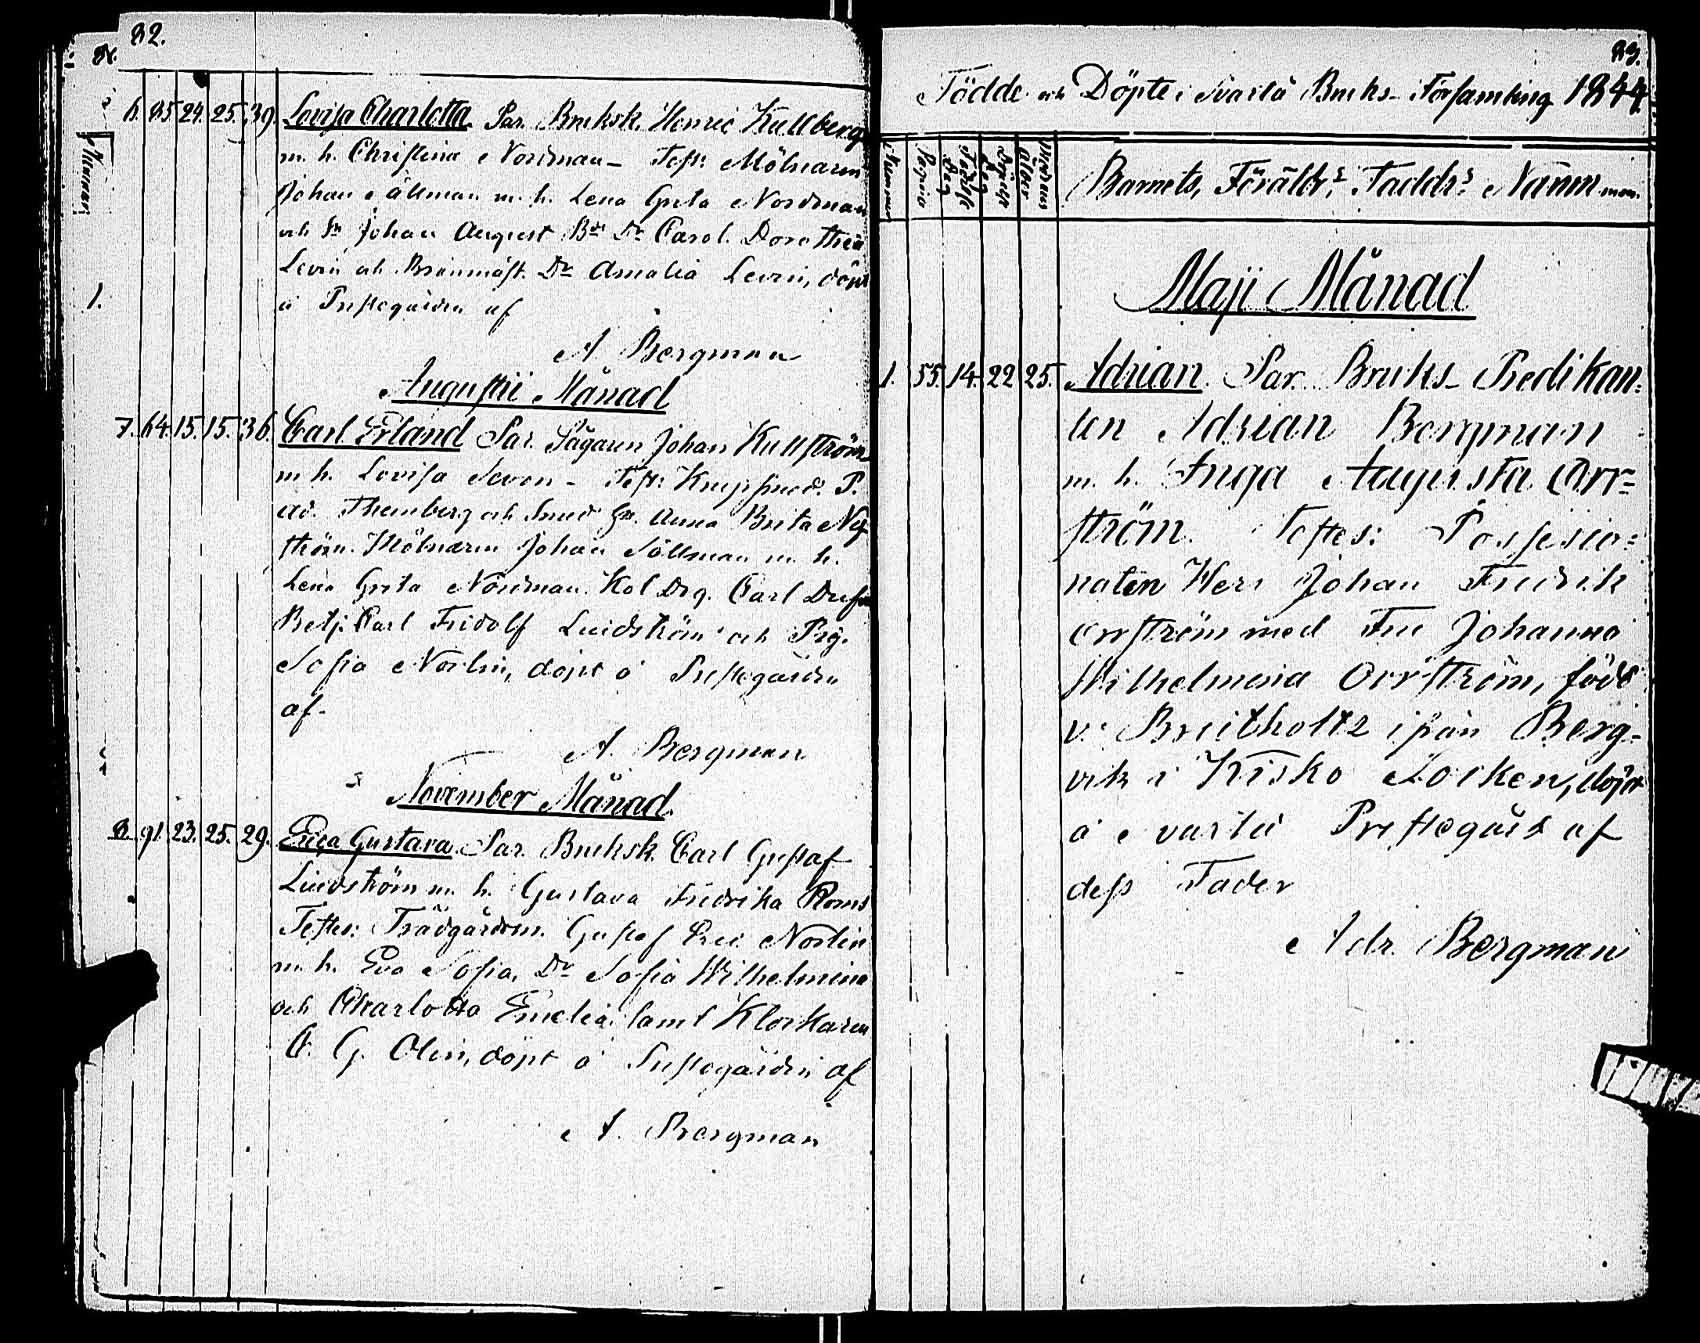 82.
6. 85. 24. 25. 39. Lovisa Charlotta Par. Bruksk. Henric Kullberg
m. h. Christina Nordman – Test: Mölnaren
Johan Sällman m. h. Lena Greta Nordman
och Johan August Dr Carol. Dorothea
Levin och Dr Amalia Levin, döpt
å Prestegården af
1.
A. Bergman
Augustii Månad
7. 64. 15. 15. 36. Carl Erland Par. Sågaren Johan Kullström
m h. Lovisa Sevon – Test: Knipsmed. P.
Ad. Thunberg och Smed Anna Brita Ny
ström. Mölnaren Johan Sällman m. h.
Lena Greta Nordman. Kol Drg. Carl
Betj. Carl Fridolf Lindström och Pig.
Sofia Norlin, döpt å Prestegården
af.
A. Bergman
November Månad
8. 91. 23. 25. 29. Erica Gustava Par. Bruksk. Carl Gustaf
Lindström m. h. Gustava Fredrika Roms
Testes: Trädgårdsm. Gustaf Norlin
m. h. Eva Sofia, Dr Sofia Wilhelmina
och Charlotta Emelia samt Klockaren
C. G. Olin, döpt å Prestegården af
A. Bergman
83.
Födde och Döpte i Svartå Bruks Församling 1844
Nummer
Pagina
Födelse Dag
Döpelse Dag
Modrens Ålder
Barnets, Föräldrs, Faddrs Namn m.m.
Maji Månad
1. 55. 14. 22 25. Adrian Par. Bruks Predikan-
ten Adrian Bergman
m. h. Inga Augusta Orr-
ström. Testes: Possessio-
naten Herr Johan Fredrik
Orrström med Fru Johanna
Wilhelmina Orrström, född
v. Breitholtz ifrån Berg-
vik i Kisko Socken, döpt
å Svartå Prestegård af
dess Fader
Adr. Bergman